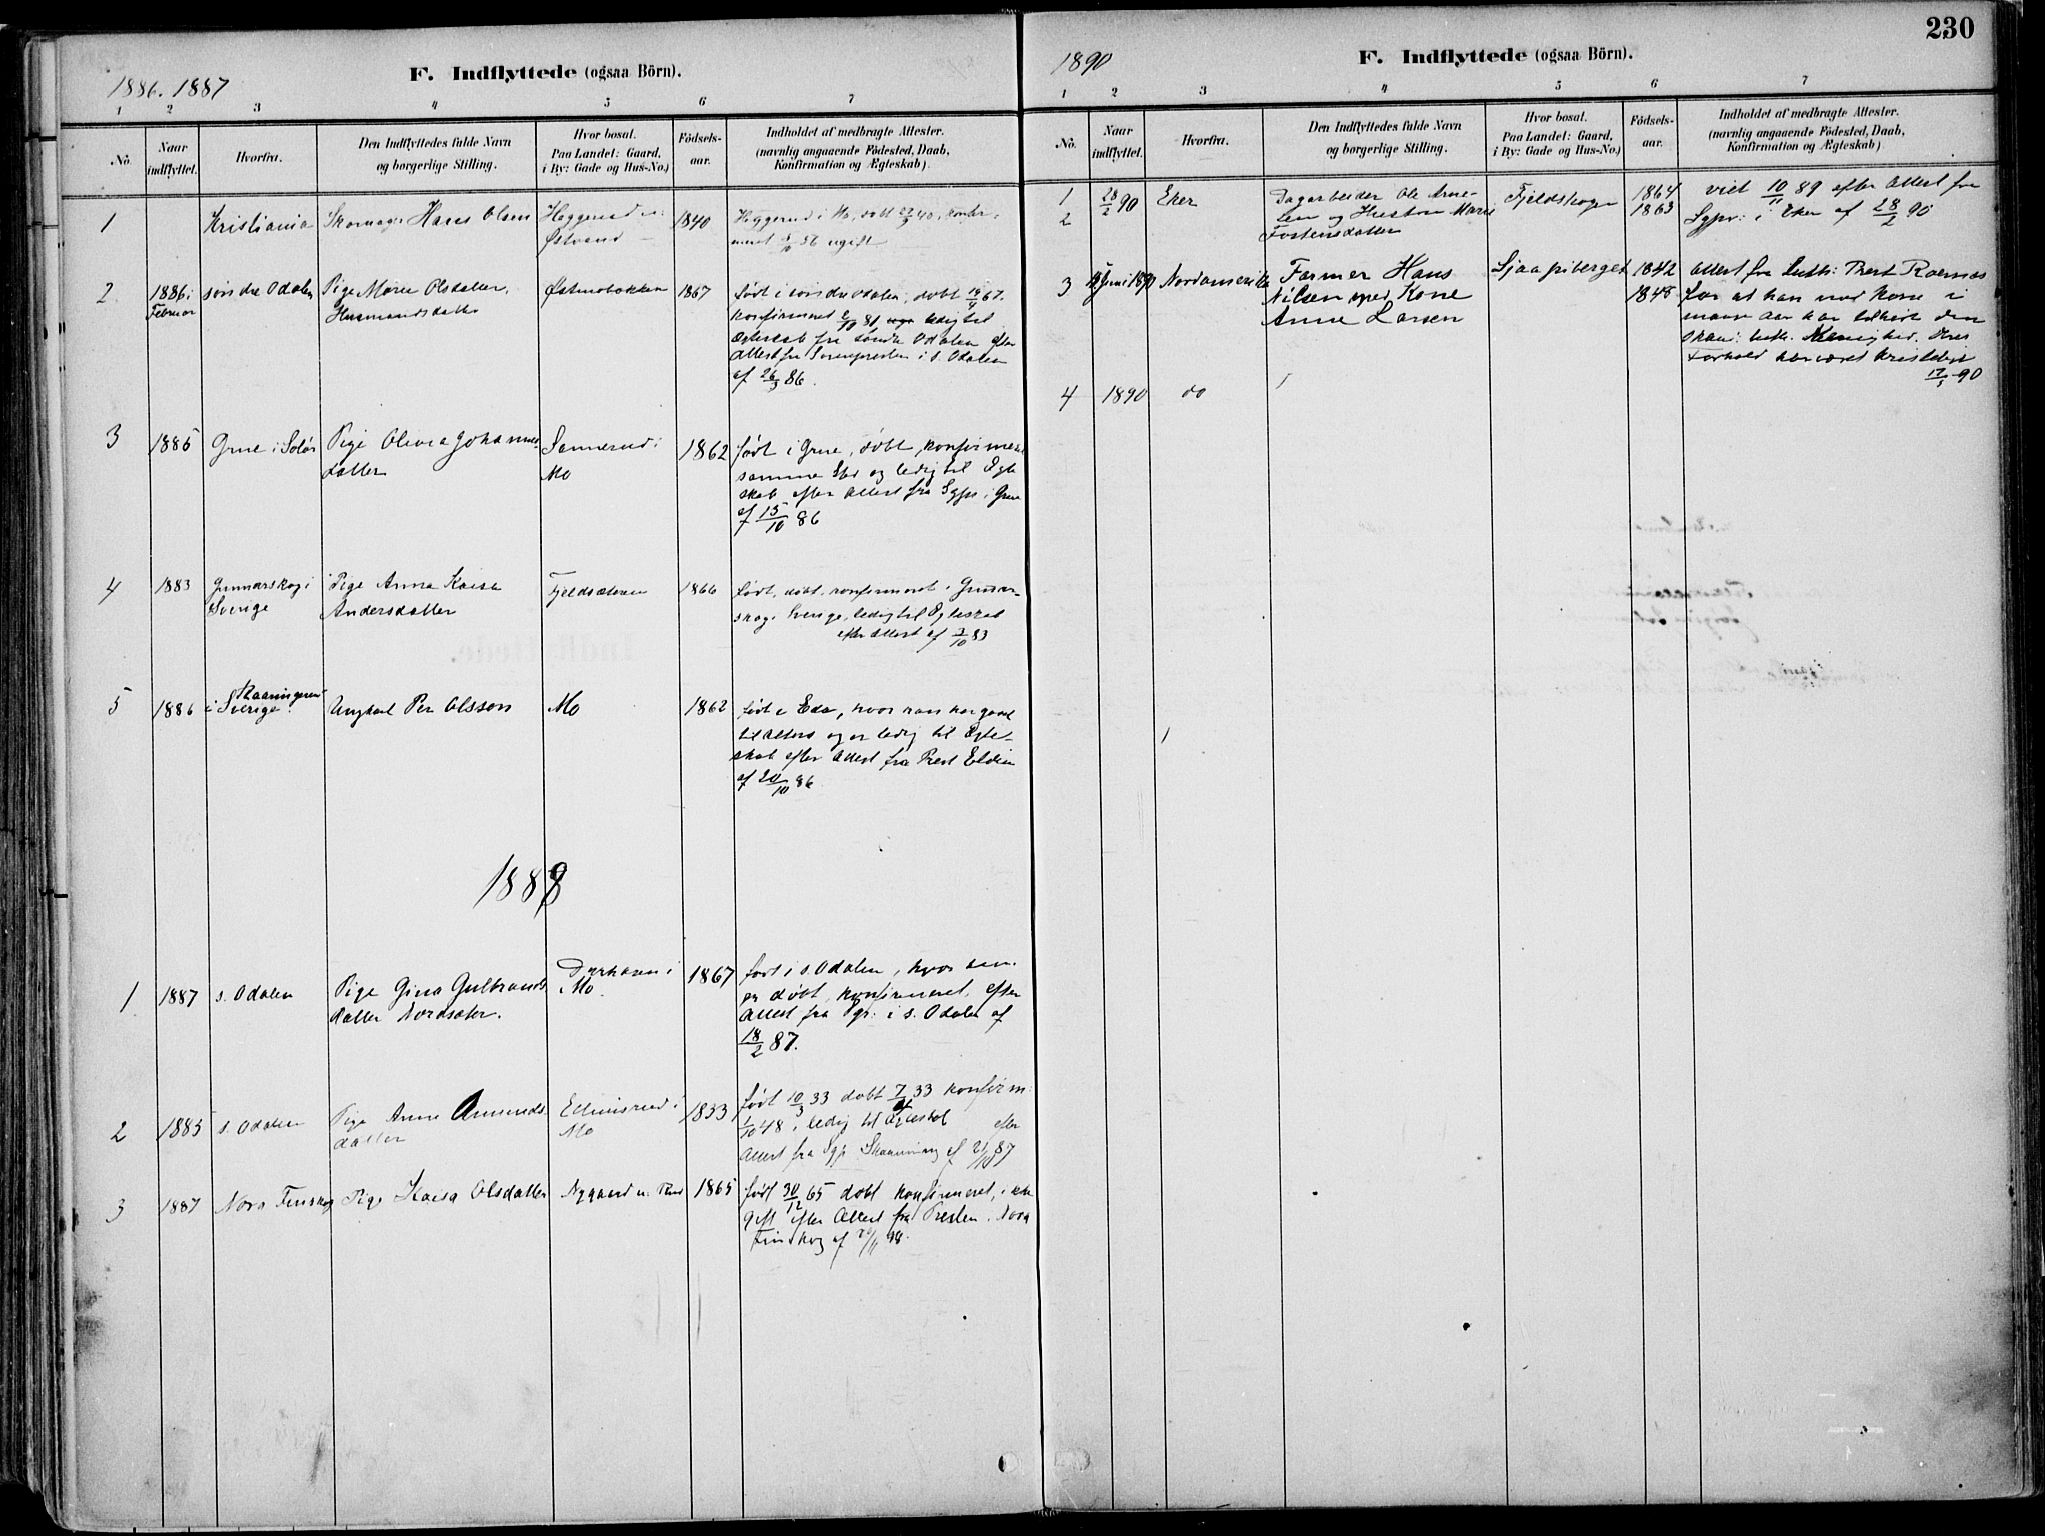 1886. 1887
F. Indflyttede (ogsaa Börn).
1 2 3 4 5 6 7
No.
Naar indflyttet.
Hvorfra.
Den Indflyttedes fulde Navn
og borgerlige Stilling.
Hvor bosat.
Paa Landet: Gaard,
i By: Gade og Hus-No.)
Födsels-
aar.
Indholdet af medbragte Attester.
(navnlig angaaende Födested, Daab,
Konfirmation og Ægteskab)
1 Kristiania Skomager Hans Olsen
Østvand
1840
Heggerud i Mo, døbt 40, konfir-
meret 56 ugift
2 1886 i
Februar
søndre Odalen
Pige Marie Olsdatter,
Husmandsdatter
Østmobakken
1867
født i søndre Odalen, døbt 67.
konfirmeret 81 ledig til
Ægteskab fra søndre Odalen efter
Attest fra Sognepresten i s. Odalen
af 26/3 86.
3 1885 Grue i Solør
Pige Olivia Johannes-
datter
Sannerud i
Mo
1862
født i Grue, døbt, konfirmeret
samme Sted og ledig til Ægte
skab efter Attest fra Sgpr. i Grue
af 15/10 86
4 1883
Gunnarskog i
Sverige
Pige Anna Kaisa
Andersdatter
Fjeldsæteren
1866
født, døbt, konfirmeret i Gunnar-
skog i Sverige, ledig til Ægteskab
efter Attest af 3/10 83
5 1886
i Sverige.
Ungkarl Per Olsson
Mo
1862
født i Eda, hvor han har gaaet
til Alters og er ledig til Ægte-
skab efter Attest fra Prest
af 20/10 86
1888
1 1887 s. Odalen
Pige Gina Gulbrands
datter Nordsæter.
i Mo.
1867
født i s. Odalen, hvor hun
er døbt, konfirmeret, efter
Attest fra Sgpr. i s. Odalen af
18/2 87.
2 1885 s. Odalen
Pige Anne Amunds
datter
Ellevsrud i
Mo
1833
født 10/3 33 døbt 33 konfirm.
1/10 48, ledig til Ægteskab efter
Attest fra Sgpr. af 87
3 1887 Nora Finskog
Pige Kaisa Olsdatter
Nygaard u.
1865
født 30/12 65 døbt konfirmeret, ikke
gift efter Attest fra Presten i Nora
Finskog af
1890
230
F. Indflyttede (ogsaa Börn).
1 2 3 4 5 6 7
No.
Naar
indflyttet.
Hvorfra.
Den Indflyttedes fulde Navn
og borgerlige Stilling.
Hvor bosat.
Paa Landet: Gaard,
i By: Gade og Hus-No.)
Födsels-
aar.
Indholdet af medbragte Attester.
(navnlig angaaende Födested, Daab,
Konfirmation og Ægteskab)
1
2
28/2 90
Eker
Dagarbeider Ole Arne-
sen og Marie
Tostensdatter
Fjeldskogen
1864
1863
viet 10/11 89 efter Attest fra
Sgpr: i Eker af 28/2 90
3 Juni 1890
Nordamerika
Farmer Hans
Nilsen med Kone
Anne Larsen
Sjaapiberget
1842
1848
Attest fra luth: Prest
for at han med Kone i
mange Aar har tilhørt den
skan: luth. Menighed. Deres
Forhold har været kristeligt
90
4 1890 do